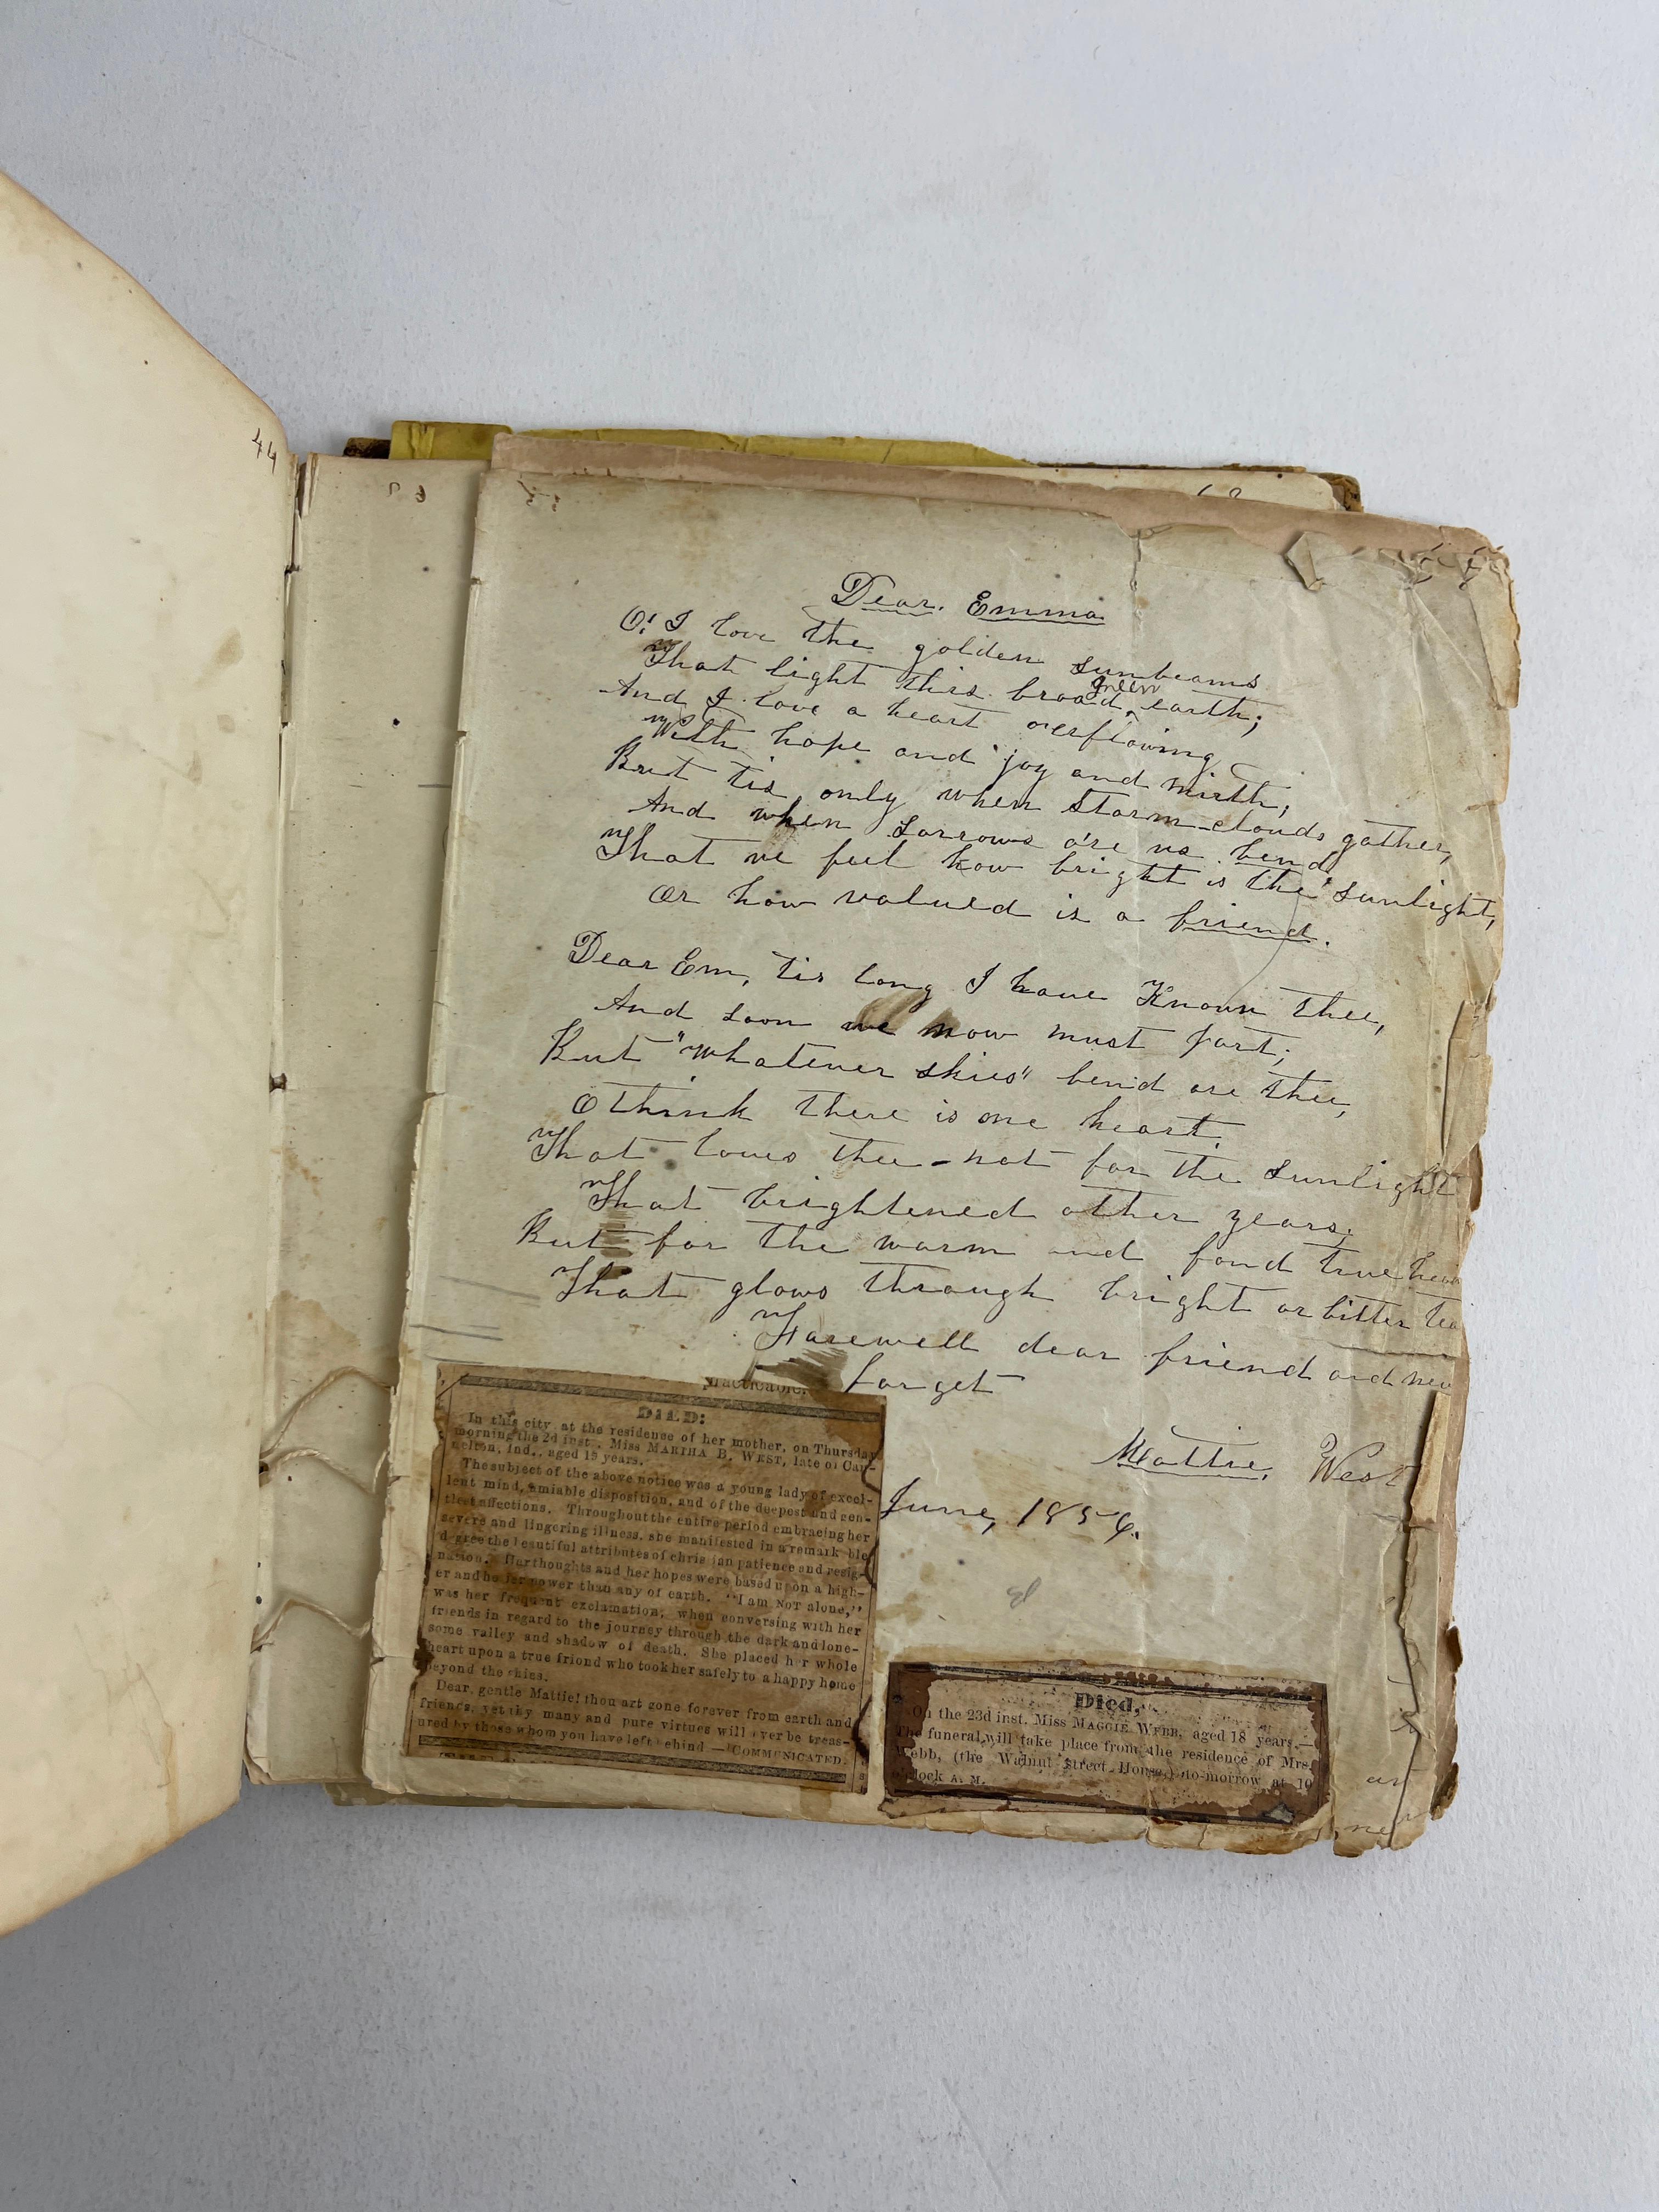 44
Dear. Emma.
O! I love the golden sunbeams
That light this broad green earth;
And I love a heart o'erflowing
With hope and joy and mirth;
But tis only when storm-clouds gather,
And when sorrows o're us bend,
That we feel how bright is the sunlight,
Or how valued is a friend.
Dear Em, tis long I have Known thee,
And soon we now must part;
But "whatever skies" bend ore thee,
O think there is one heart.
That loves thee - not for the sunlight
That brightened other years;
But for the warm and fond true
That glows through bright or bitter
Farewell dear friend and
forget
Mattie. West
June, 1856.
DIED:
In this city, at the residence of her mother, on Thursday
morning the 2d inst., Miss MARTHA B. WEST, late of Can-
nelton, Ind., aged 19 years.
The subject of the above notice was a young lady of excel-
lent mind, amiable disposition, and of the deepest and gen-
tlest affections. Throughout the entire period embracing her
severe and lingering illness, she manifested in a remark ble
degree the beautiful attributes of chris ian patience and resig-
nation. Her thoughts and her hopes were based upon a high-
er and ho ier power than any of earth. "I am NOT alone,"
was her frequent exclamation, when conversing with her
friends in regard to the journey through the dark and lone-
some valley and shadow of death. She placed h r whole
heart upon a true friend who took her safely to a happy home
beyond the skies.
Dear, gentle Mattie! thou art gone forever from earth and
friends, yet thy many and pure virtues will ever be treas-
ured by those whom you have left behind — COMMUNICATED.
Died,
On the 23d inst. Miss MAGGIE WEBB, aged 18 years.—
The funeral will take place from the residence of Mrs.
Webb, (the Walnut Street House,) to-morrow at 10
o'clock A. M.